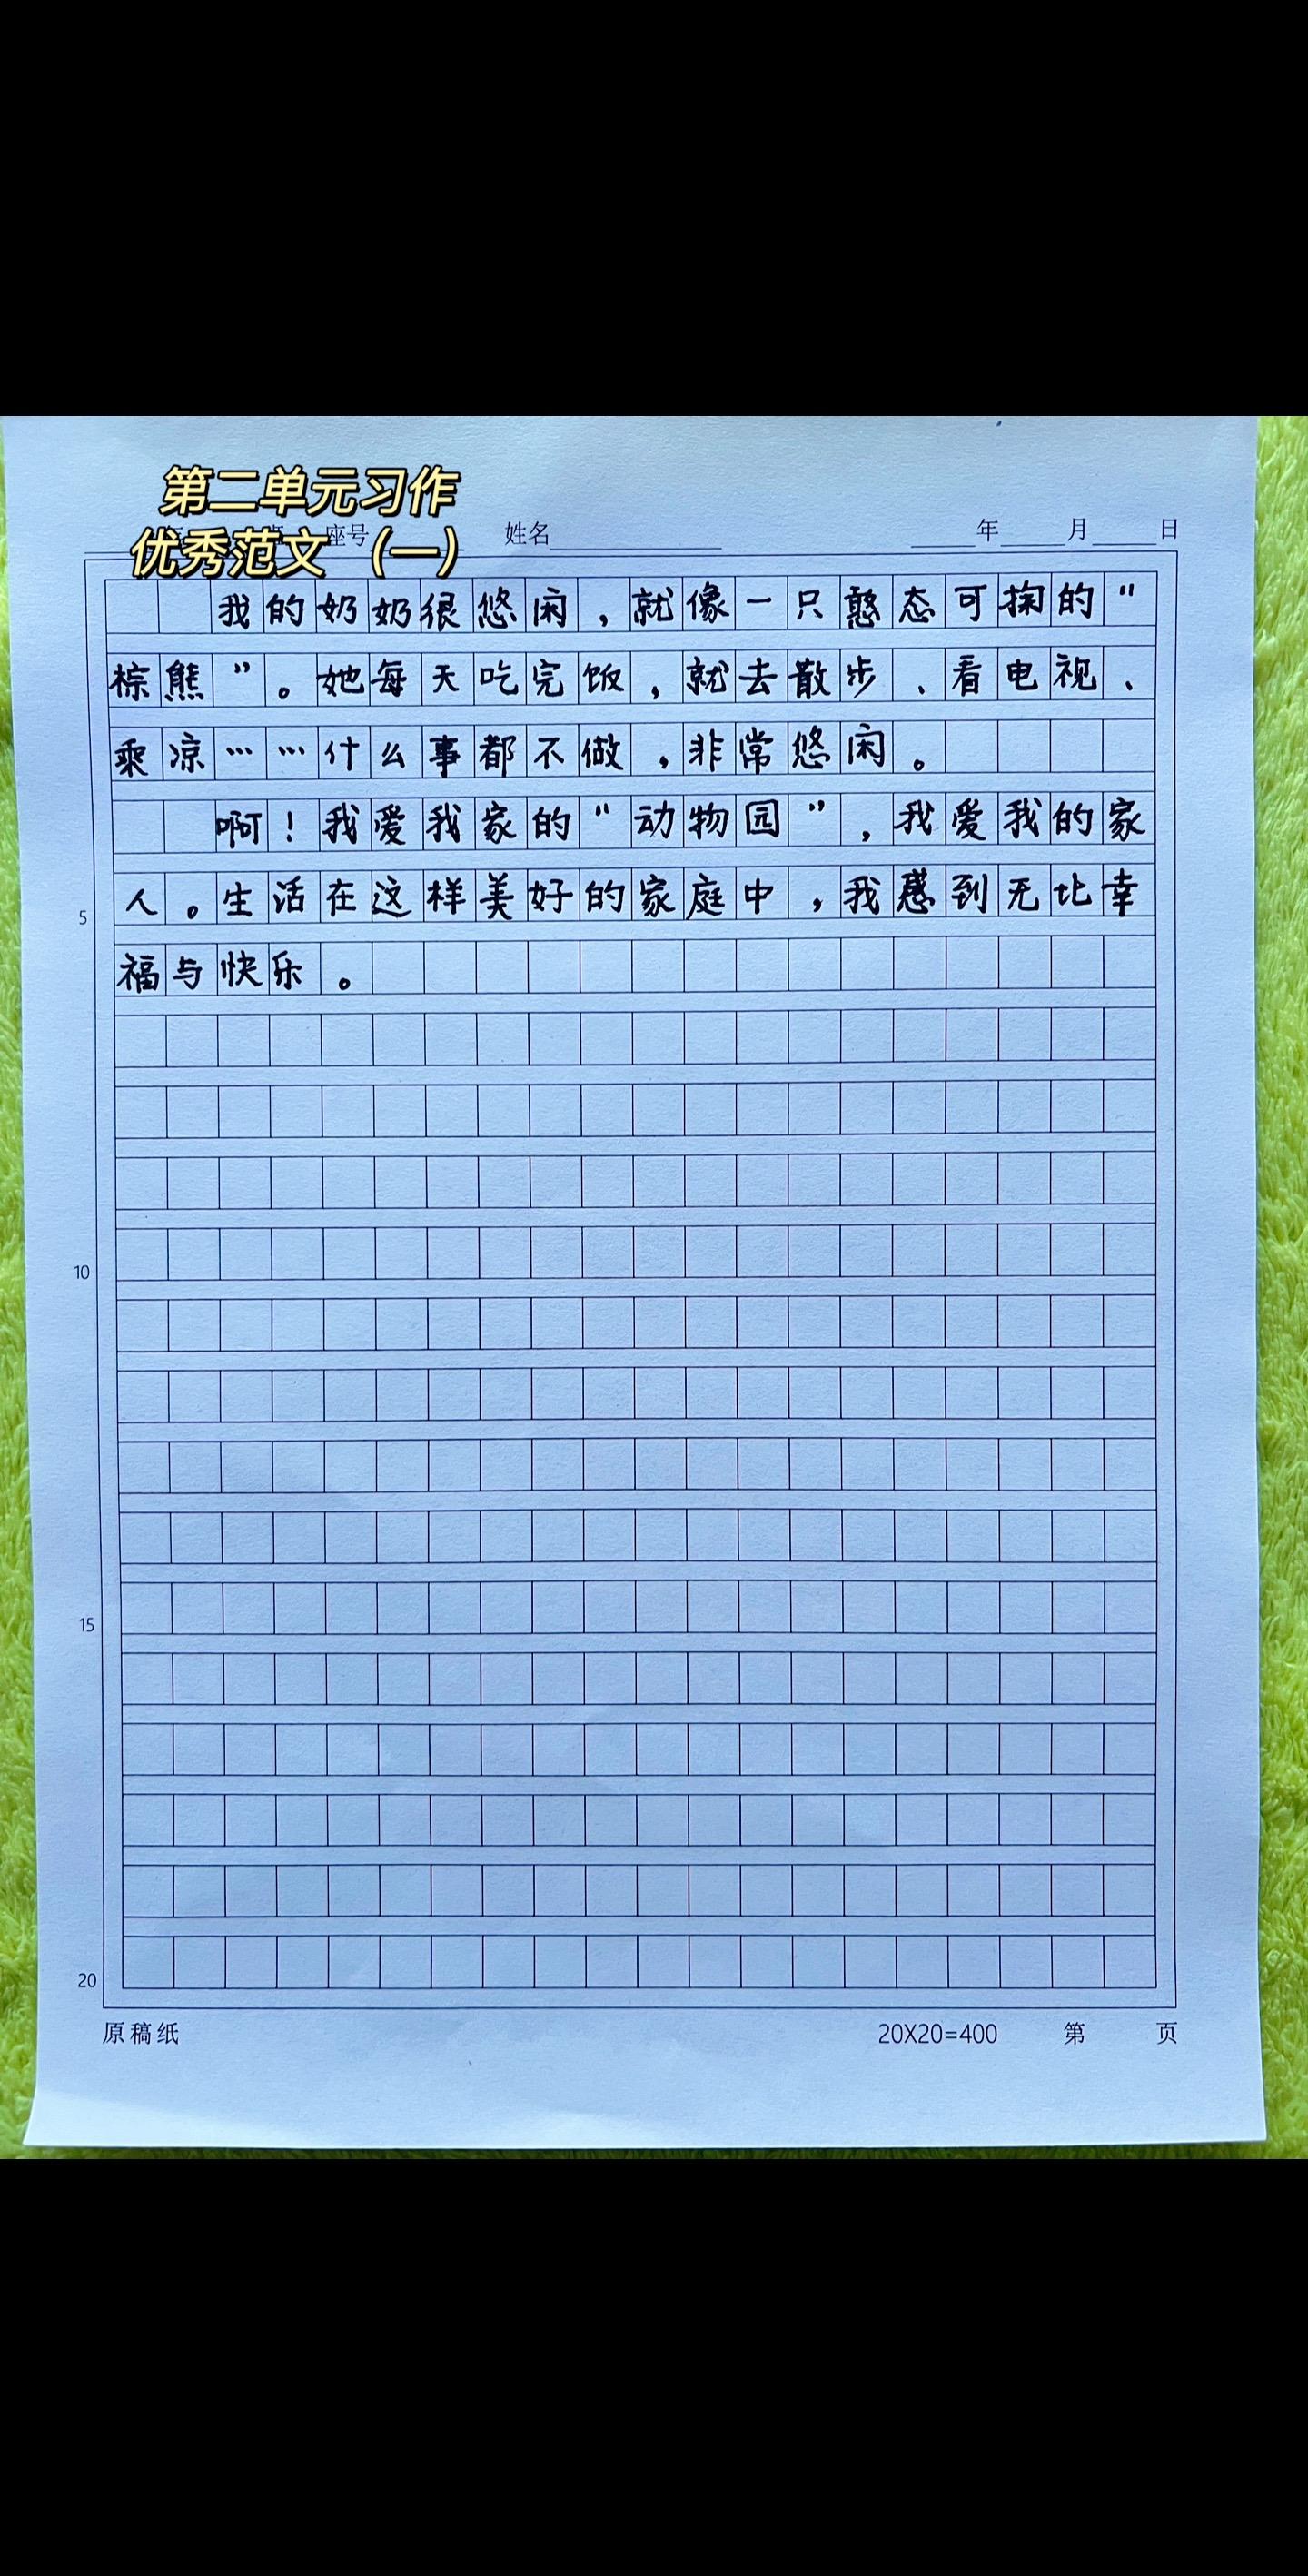 第二单元习作
优秀范文（一）
座号 姓名 年 月 日
我的奶奶很悠闲，就像一只憨态可掬的“
棕熊”。她每天吃完饭，就去散步、看电视、
乘凉……什么事都不做，非常悠闲。
啊！我爱我家的“动物园”，我爱我的家
人。生活在这样美好的家庭中，我感到无比幸
福与快乐。
5
10
15
20
原稿纸 20X20=400 第 页